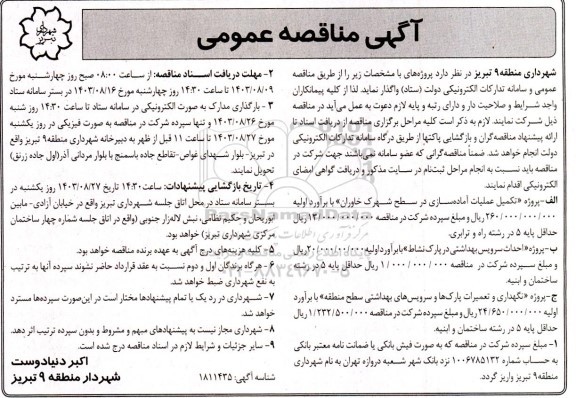 آگهی مناقصه عمومی
شهرداری تبریز
شهرداری منطقه ۹ تبریز در نظر دارد پروژه‌های با مشخصات زیر را از طریق مناقصه
عمومی و سامانه تدارکات الکترونیکی دولت (ستاد) واگذار نماید، لذا از کلیه پیمانکاران
واجد شرایط و صلاحیت دار و دارای رتبه و پایه لازم دعوت به عمل می‌آید در مناقصه
ذیل شرکت نمایند. لازم به ذکر است کلیه مراحل برگزاری مناقصه از دریافت اسناد تا
ارائه پیشنهاد مناقصه‌گران و بازگشایی پاکتها از طریق درگاه سامانه تدارکات الکترونیکی
دولت انجام خواهد شد. ضمناً مناقصه‌گرانی که عضو سامانه نمی‌باشند جهت شرکت در
مناقصه باید نسبت به انجام مراحل ثبت‌نام در سایت مذکور و دریافت گواهی امضای
الکترونیکی اقدام نمایند.
الف-پروژه «تکمیل عملیات آماده‌سازی در سطح شهرک خاوران» با برآورد اولیه
۲۶۰/۰۰۰/۰۰۰/۰۰۰ ریال و مبلغ سپرده شرکت در مناقصه ۱۳/۰۰۰/۰۰۰/۰۰۰ ریال
حداقل پایه ۵ در رشته راه و ترابری.
ب-پروژه «احداث سرویس بهداشتی در پارک نشاط» با برآورد اولیه ۲۰/۰۰۰/۰۰۰/۰۰۰ ریال
و مبلغ سپرده شرکت در مناقصه ۱/۰۰۰/۰۰۰/۰۰۰ ریال حداقل پایه ۵ در رشته
ساختمان و ابنیه.
ج-پروژه «نگهداری و تعمیرات پارک‌ها و سرویس‌های بهداشتی سطح منطقه» با برآورد
اولیه ۲۴/۶۵۰/۰۰۰/۰۰۰ ریال و مبلغ سپرده شرکت در مناقصه ۱/۲۳۲/۵۰۰/۰۰۰ ریال
حداقل پایه ۵ در رشته ساختمان و ابنیه.
۱- مبلغ سپرده شرکت در مناقصه که به صورت فیش بانکی یا ضمانت نامه معتبر بانکی
به حساب شماره ۱۰۰۶۷۸۵۱۳۲ نزد بانک شهر شعبه دروازه تهران به نام شهرداری
منطقه ۹ تبریز واریز گردد.
۲- مهلت دریافت اسناد مناقصه: از ساعت ۰۸:۰۰ صبح روز چهارشنبه مورخ
۱۴۰۳/۰۸/۰۹ تا ساعت ۱۴:۳۰ روز چهارشنبه مورخ ۱۴۰۳/۰۸/۱۶ در بستر سامانه ستاد
۳ - بارگذاری مدارک به صورت الکترونیکی در سامانه ستاد تا ساعت ۱۴:۳۰ روز شنبه
مورخ ۱۴۰۳/۰۸/۲۶ و تنها سپرده شرکت در مناقصه به صورت فیزیکی در روز یکشنبه
مورخ ۱۴۰۳/۰۸/۲۷ تا ساعت ۱۱ قبل از ظهر به دبیرخانه شهرداری منطقه ۹ تبریز واقع
در تبریز- بلوار شهدای غواص -تقاطع جاده باسمنج با بلوار مردانی آذر(اول جاده زرنق)
تحویل نمایند.
۴- تاریخ بازگشایی پیشنهادات: ساعت ۱۴:۳۰ تاریخ ۱۴۰۳/۰۸/۲۷ روز یکشنبه در
بستر سامانه ستاد در محل اتاق جلسه شهرداری تبریز واقع در خیابان آزادی- مابین
گلکار، نبش لاله‌زار جنوبی (واقع در اتاق جلسه شماره چهار ساختمان
مرکزی شهرداری تبریز) خواهد بود.
۵- کلیه هزینه‌های درج آگهی به عهده برنده مناقصه خواهد بود.
۶- هرگاه برندگان اول و دوم نسبت به عقد قرارداد حاضر نشوند سپرده آنها به ترتیب
به نفع شهرداری ضبط خواهد شد.
۷- شهرداری در رد یک یا تمام پیشنهادها مختار است در این‌صورت سپرده‌ها مسترد
خواهد شد.
۸- شهرداری مجاز نیست به پیشنهادهای مبهم و مشروط و بدون سپرده ترتیب اثر دهد.
۹- سایر جزئیات و شرایط لازم در اسناد مناقصه درج شده است.
شناسه آگهی: ۱۸۱۱۴۳۵
اکبر دنیادوست
شهردار منطقه ۹ تبریز